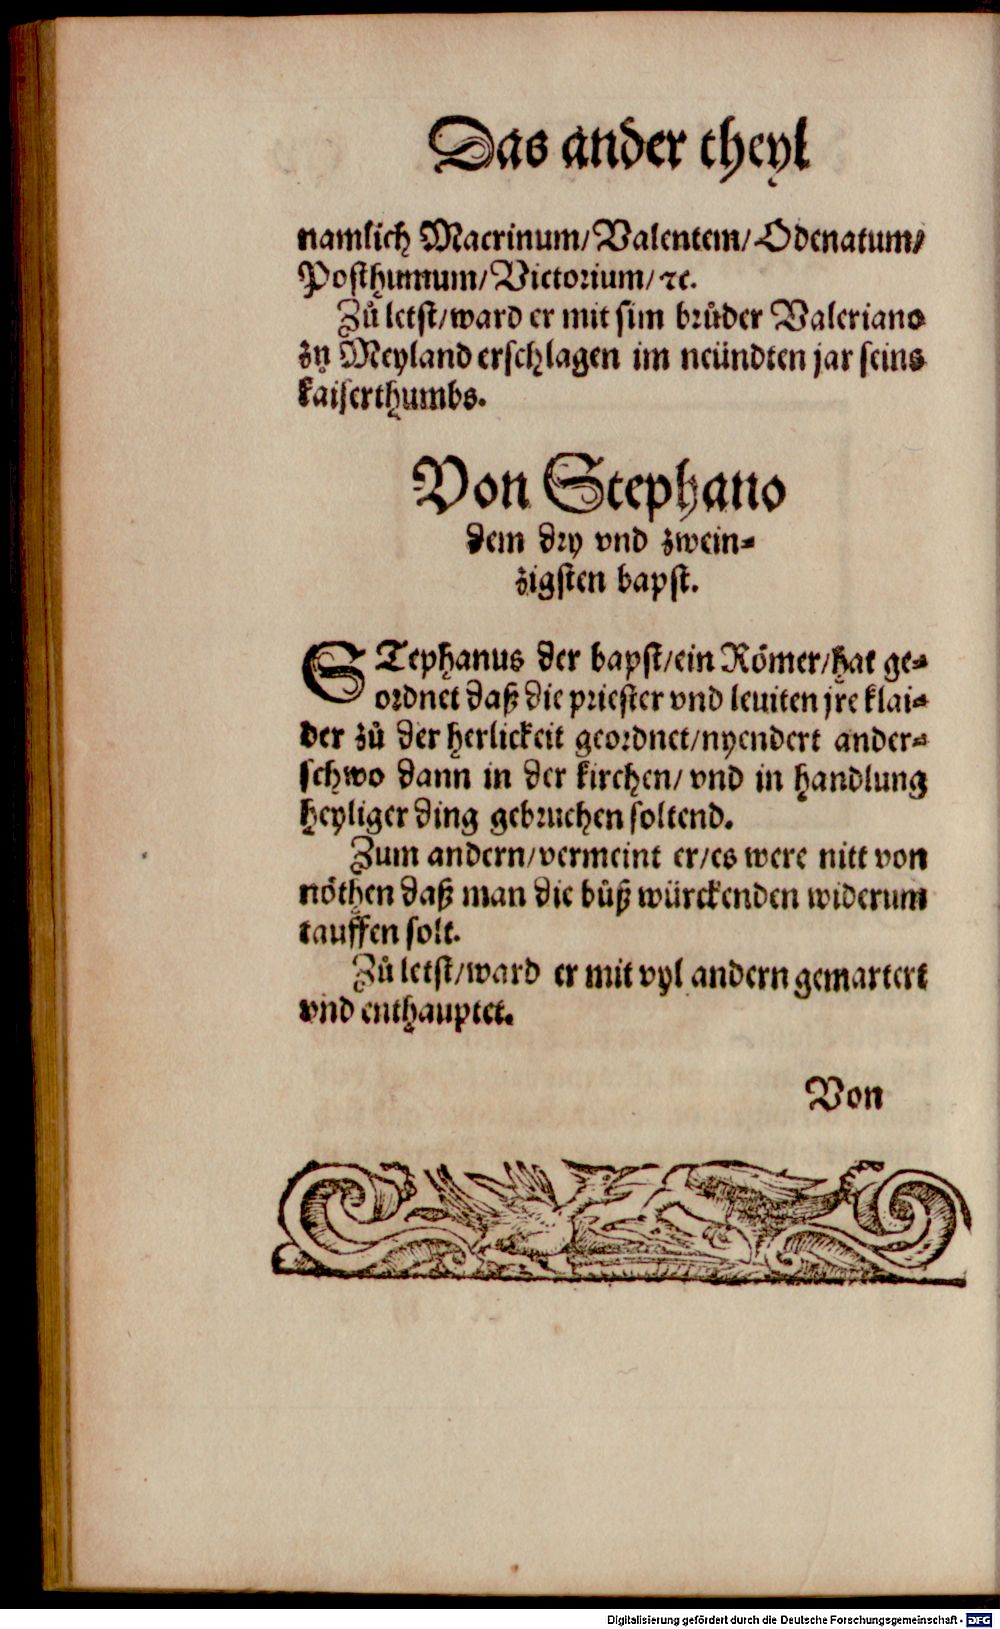 Das ander theyl
namlich Macrinum/Valentem/Odenatum/
Posthumum/Victorium/ ꝛc.
Zů letst/ward er mit sim brůder Valeriano
zů Meyland erschlagen im neündten jar seins
kaiserthumbs.
Von Stephano
dem dry vnd zwein⸗
zigsten bapst.
STephanus der bapst/ein Römer/hat ge⸗
ordnet daß die priester vnd leuiten jre klai⸗
der zů der herlickeit geordnet/nyendert ander⸗
schwo dann in der kirchen/ vnd in handlung
heyliger ding gebruchen soltend.
Zum andern/vermeint er/es were nitt von
nöthen daß man die bůß würckenden widerum
tauffen solt.
Zů letst/ward er mit vyl andern gemartert
vnd enthauptet.
Von
Digitalisierung gefördert durch die Deutsche Forschungsgemeinschaft - DFG